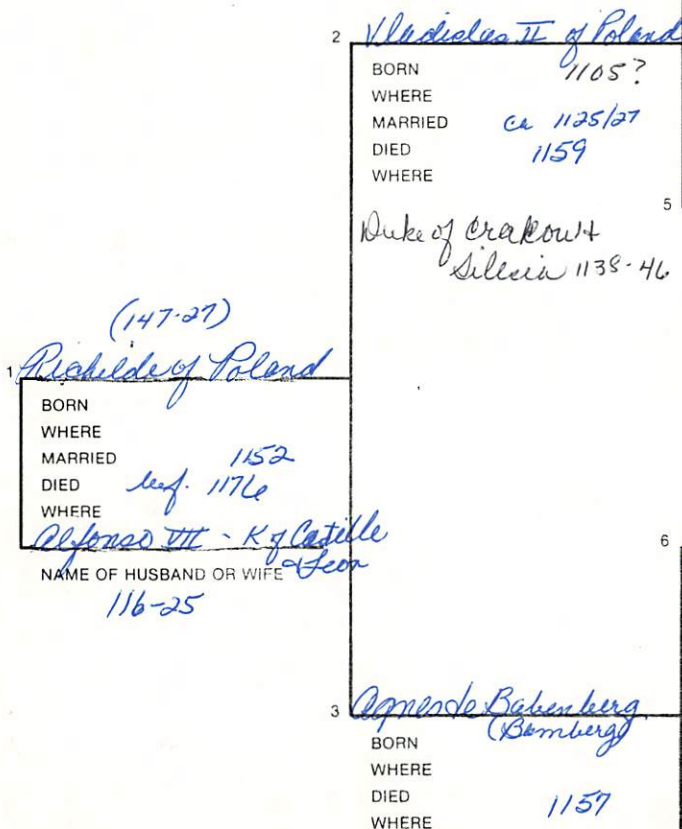 2 Vladislas II of Poland
BORN 1105?
WHERE
MARRIED ca 1125/27
DIED 1159
WHERE
5
Duke of Crakow +
Silesia 1138-46
(147-27)
1 Richilde of Poland
BORN
WHERE
MARRIED 1152
DIED bef. 1176
WHERE
Alfonso VII - K of Castille
& Leon
NAME OF HUSBAND OR WIFE
116-25
6
3 Agnes de Babenberg
(Bamberg)
BORN
WHERE
DIED 1157
WHERE